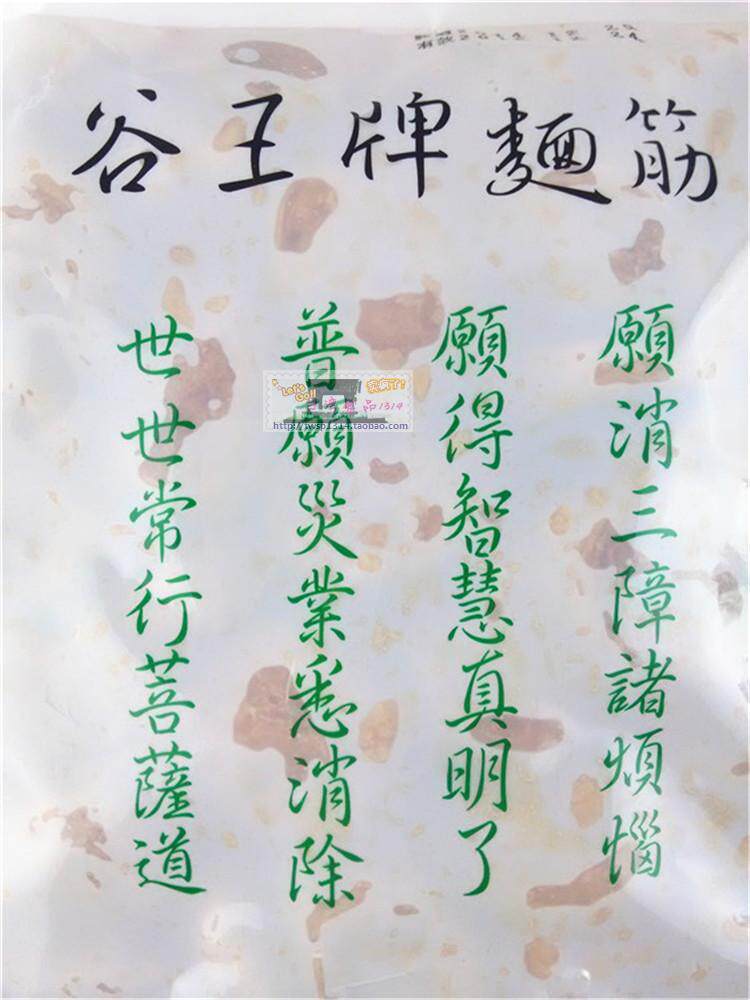 谷王牌麵筋
願消三障諸煩惱
願得智慧真明了
普願災業悉消除
世世常行菩薩道
Let's Go!!
http://twsp1314.taobao.com